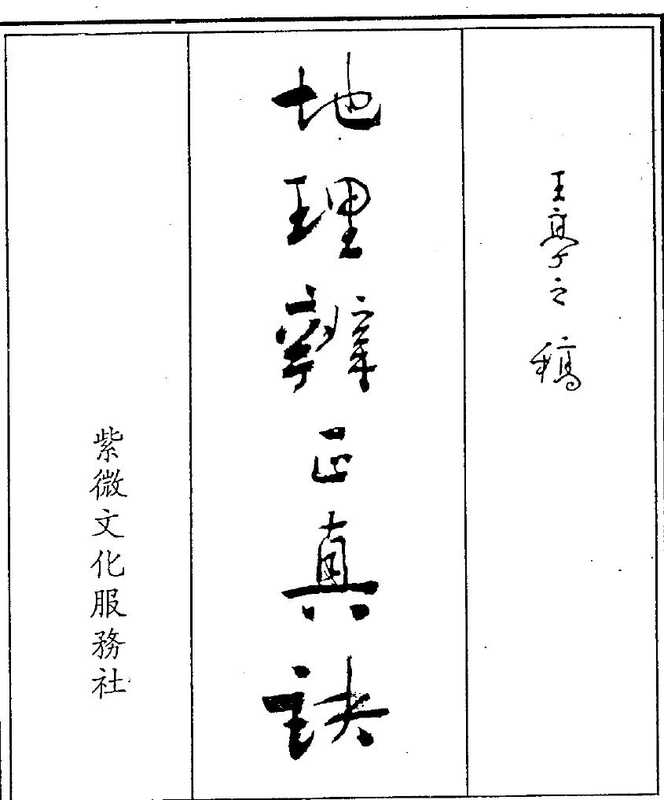 王亭之 稿
地理辨正真訣
紫微文化服務社